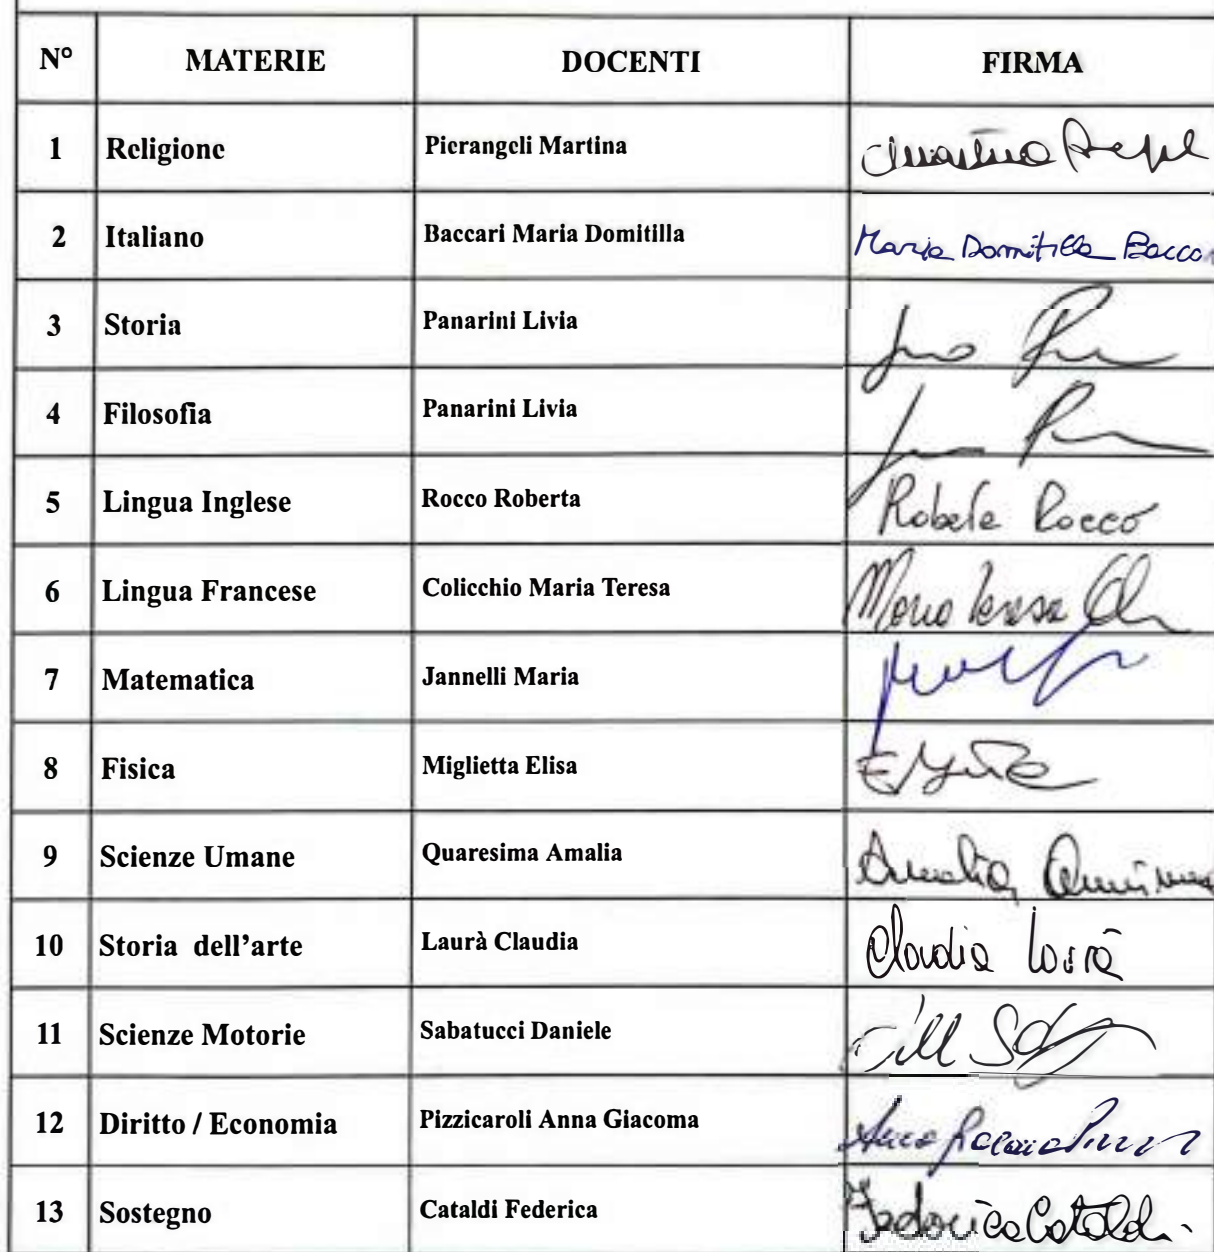 N° MATERIE DOCENTI FIRMA
1 Religione Pierangeli Martina Martina
2 Italiano Baccari Maria Domitilla Maria Domitilla Bacca
3 Storia Panarini Livia
4 Filosofia Panarini Livia
5 Lingua Inglese Rocco Roberta Roberta Rocco
6 Lingua Francese Colicchio Maria Teresa Maria Teresa
7 Matematica Jannelli Maria
8 Fisica Miglietta Elisa
9 Scienze Umane Quaresima Amalia Amalia
10 Storia dell'arte Laurà Claudia Claudia Laurà
11 Scienze Motorie Sabatucci Daniele
12 Diritto / Economia Pizzicaroli Anna Giacoma
13 Sostegno Cataldi Federica Federica Cataldi